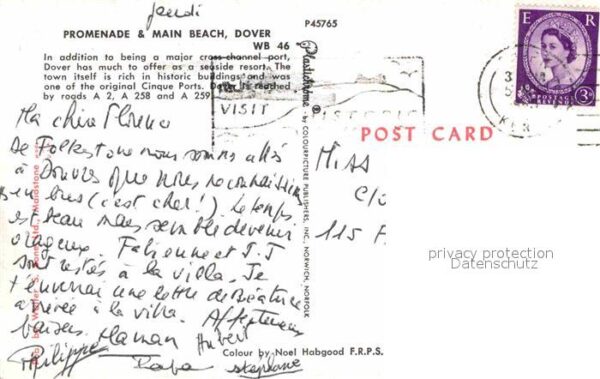 jeudi
P45765
PROMENADE & MAIN BEACH, DOVER
WB 46
In addition to being a major cross-channel port,
Dover has much to offer as a seaside resort. The
town itself is rich in historic buildings and was
one of the original Cinque Ports. Dover is reached
by roads A 2, A 258 and A 259.
E R
POSTAGE
3D
VISIT
POST CARD
Plastichrome
by COLOURPICTURE PUBLISHERS, INC., NORWICH, NORFOLK
Ma chère Florence
De Folkestone nous sommes allés
à Douvres que nous
en bus (c'est cher!) le temps
est beau mais semble devenir
orageux. Fabienne et J.J
sont restés à la villa. Je
t'enverrai une lettre de Béatrice
arrivée à la villa. Affectueux
baisers Maman Hubert
Philippe Papa Stéphane
Miss
C/o
115 F
privacy protection
Datenschutz
Maidstone
Colour by Noel Habgood F.R.P.S.